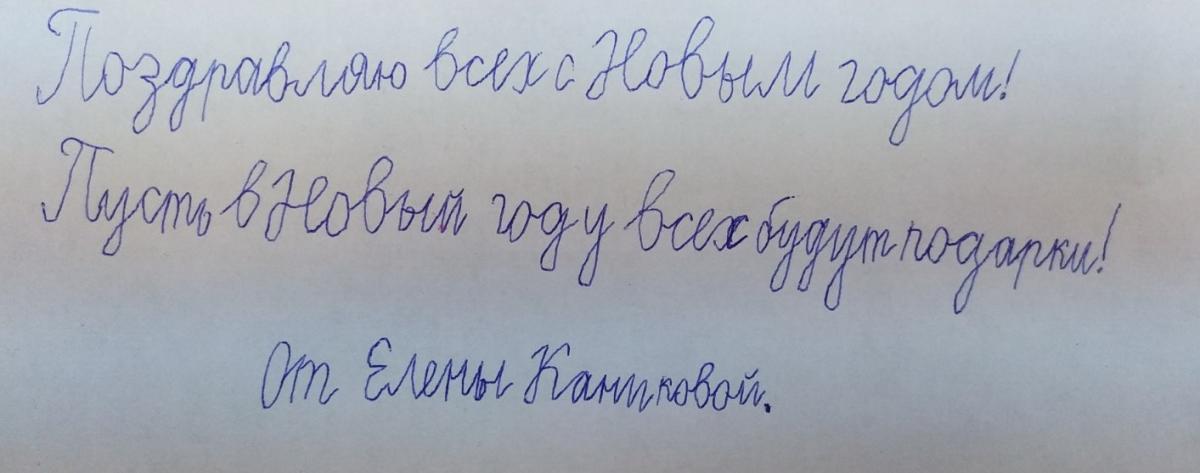 Поздравляю всех с Новым годом!
Пусть в Новый году всех будут подарки!
От Елены